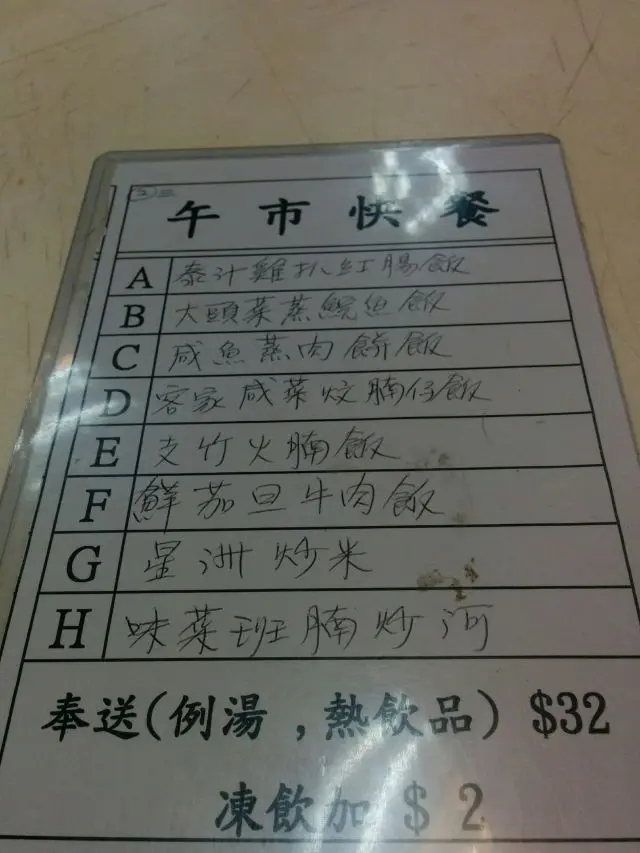 ②三
午市快餐
A 泰汁雞扒紅腸飯
B 大頭菜蒸鯇魚飯
C 咸魚蒸肉餅飯
D 客家咸菜炆腩仔飯
E 支竹火腩飯
F 鮮茄旦牛肉飯
G 星洲炒米
H 味菜班腩炒河
奉送(例湯,熱飲品) $32
凍飲加 $ 2